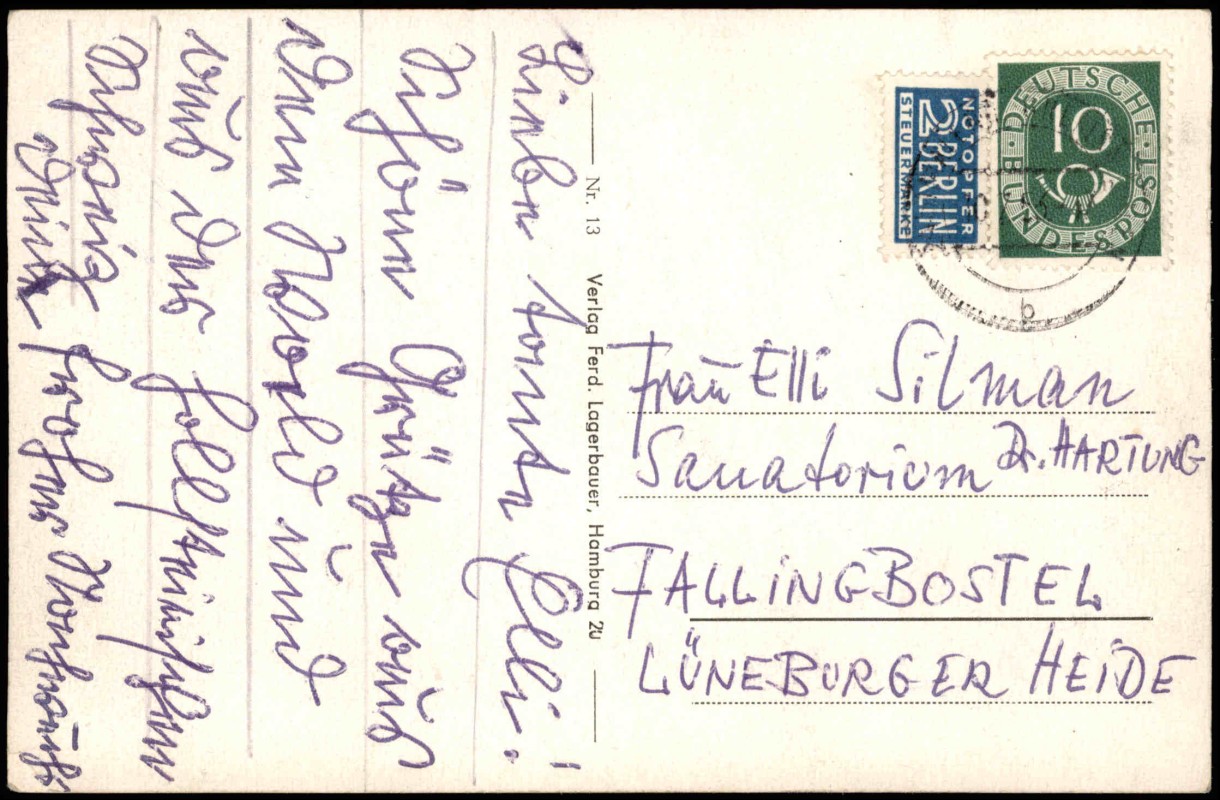 Liebe tante Elli!
Schöne Grüße aus
dem Wald und
aus der holsteinischen
Schweiz
Nr. 13 Verlag Ferd. Lagerbauer, Hamburg 20
NOTOPFER
2 BERLIN
STEUERMARKE
DEUTSCHE BUNDESPOST
10
b
Frau Elli Silman
Sanatorium Dr. HARTUNG
FALLINGBOSTEL
LÜNEBURGER HEIDE